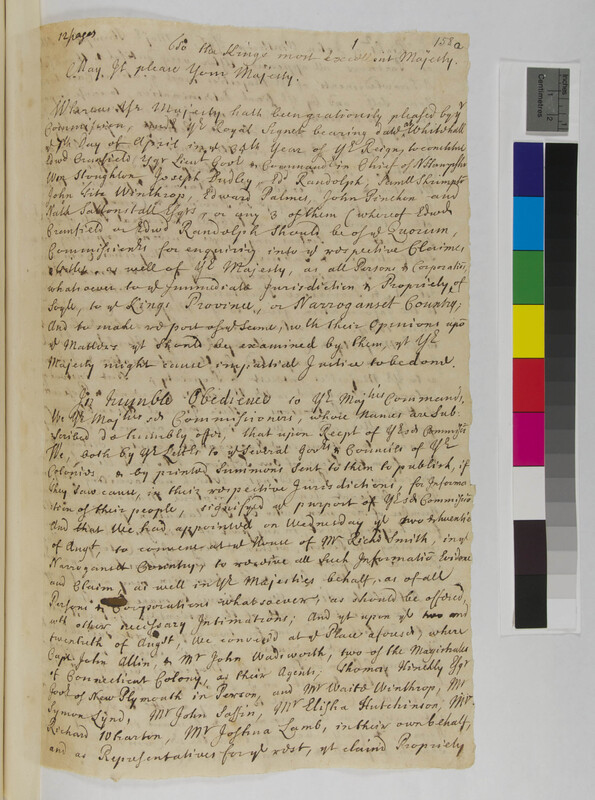 12 pages
1
158a
To the Kings most excellent Majesty.
May It please Your Majesty.
Whereas Yr Majesty hath been gratiously pleased by yr
Commission, under Yr Royal Signet bearing date at Whitehall
ye 7th Day of April in ye 35th Year of Yr Reign, to constitute
Edwd Cranfield Esqr Lieut Govr & Commandr in Chief of N Hampshr
Wm Stoughton, Joseph Dudley, Ed Randolph, Samll Shrimpton
John Fitz Winthrop, Edward Palmes, John Pinchon and
Nathl Saltonstall Esqrs, or any 3 of them (whereof Edwd
Cranfield or Edwd Randolph should be of ye Quorum,
Commissionrs for enquiring into ye respective Claimes
as well of Yr Majesty, as all Persons & Corporations,
whatsoever to ye Immediate Jurisdiction & Propriety of
Soyle, to ye Kings Province, or Narroganset Country;
And to make report of ye same, with their Opinions upo
ye Matters yt should be examined by them, yt Yr
Majesty might cause impartial Justice to be done.
In humble Obedience to Yr Majties Command,
We Yr Majties sd Commissioners, whose Names are Sub
scribed do humbly offer, that upon Recept of Yr sd Commissn
We, both by Yr Lettrs to ye several Govrs & Councils of Yr
Colonies & by printed Summons sent to them to publish, if
they saw cause, in their respective Jurisdictions, for Informa
tion of their people, signifyed ye purport of Yr sd Commission
And that We had appointed on Wednesday ye two & twentieth
of Augt, to convene at ye House of Mr Richd Smith, in ye
Narroganset Country, to receive all such Informatio Evidence
and Claim, as well in Yr Majesties behalf, as of all
Persons & Corporations whatsoever, as should be offered,
wth other necessary Intimations; And yt upon ye two and
twentieth of Augst, We convened at ye Place aforesd; where
Capt John Allin, & Mr John Wadsworth, two of the Magistrates
of Connecticut Colony, as their Agents; Thomas Hinckly Esqr
Govr of New Plymouth in Person, and Mr Waite Winthrop, Mr
Symon Lynd, Mr John Saffin, Mr Elisha Hutchinson, Mr
Richard Wharton, Mr Joshua Lamb, in their own behalf,
and as Representatives for ye rest, yt claimd Propriety